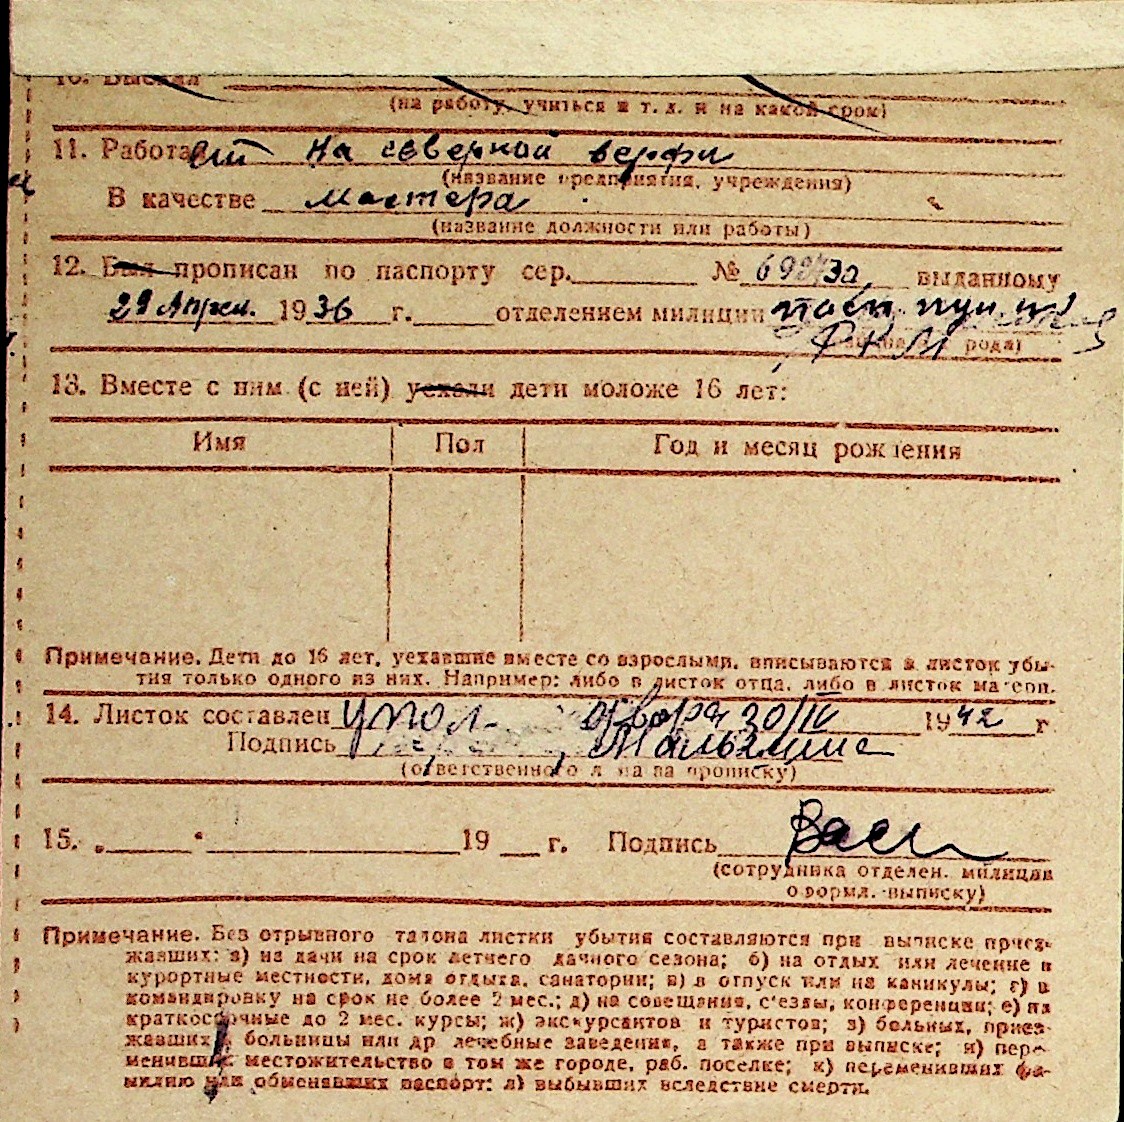 10. Выехал
(на работу, учиться и т. д. и на какой срок)
11. Работает на северной верфи
(название предприятия, учреждения)
В качестве мастера
(название должности или работы)
12. Был прописан по паспорту сер. № выданному
29 Апрел. 1936 г. отделением милиции
РКМ рода)
13. Вместе с ним (с ней) уехали дети моложе 16 лет:
Имя Пол Год и месяц рождения
Примечание. Дети до 16 лет, уехавшие вместе со взрослыми, вписываются в листок убы-
тия только одного из них. Например: либо в листок отца, либо в листок матери.
14. Листок составлен Упол. двора 30/IV 1942 г
Подпись
(ответственного лица за прописку)
15. „ “ 19 г. Подпись Вас
(сотрудника отделен. милиции
оформл. выписку)
Примечание. Без отрывного талона листки убытия составляются при выписке приез-
жавших: а) на дачи на срок летнего дачного сезона; б) на отдых или лечение в
курортные местности, дома отдыха, санатории; в) в отпуск или на каникулы; г) в
командировку на срок не более 2 мес.; д) на совещания, с'езды, конференции; е) на
краткосрочные до 2 мес. курсы; ж) экскурсантов и туристов; з) больных, приез-
жавших в больницы или др лечебные заведения, а также при выписке; и) пере-
менивших местожительство в том же городе, раб. поселке; к) переменивших фа-
милию или обменявших паспорт; л) выбывших вследствие смерти.